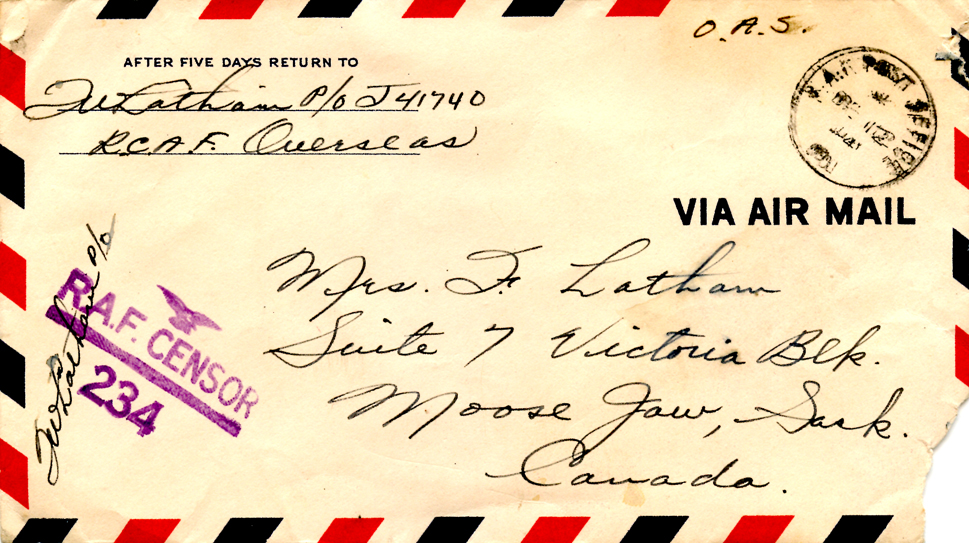 O.A.S.
AFTER FIVE DAYS RETURN TO
FW Latham P/o J 41740
R.C.A.F. Overseas
R.A.F. POST OFFICE
VIA AIR MAIL
Mrs. F. Latham
Suite 7 Victoria Blk.
Moose Jaw, Sask.
Canada.
R.A.F. CENSOR
234
FW Latham P/o